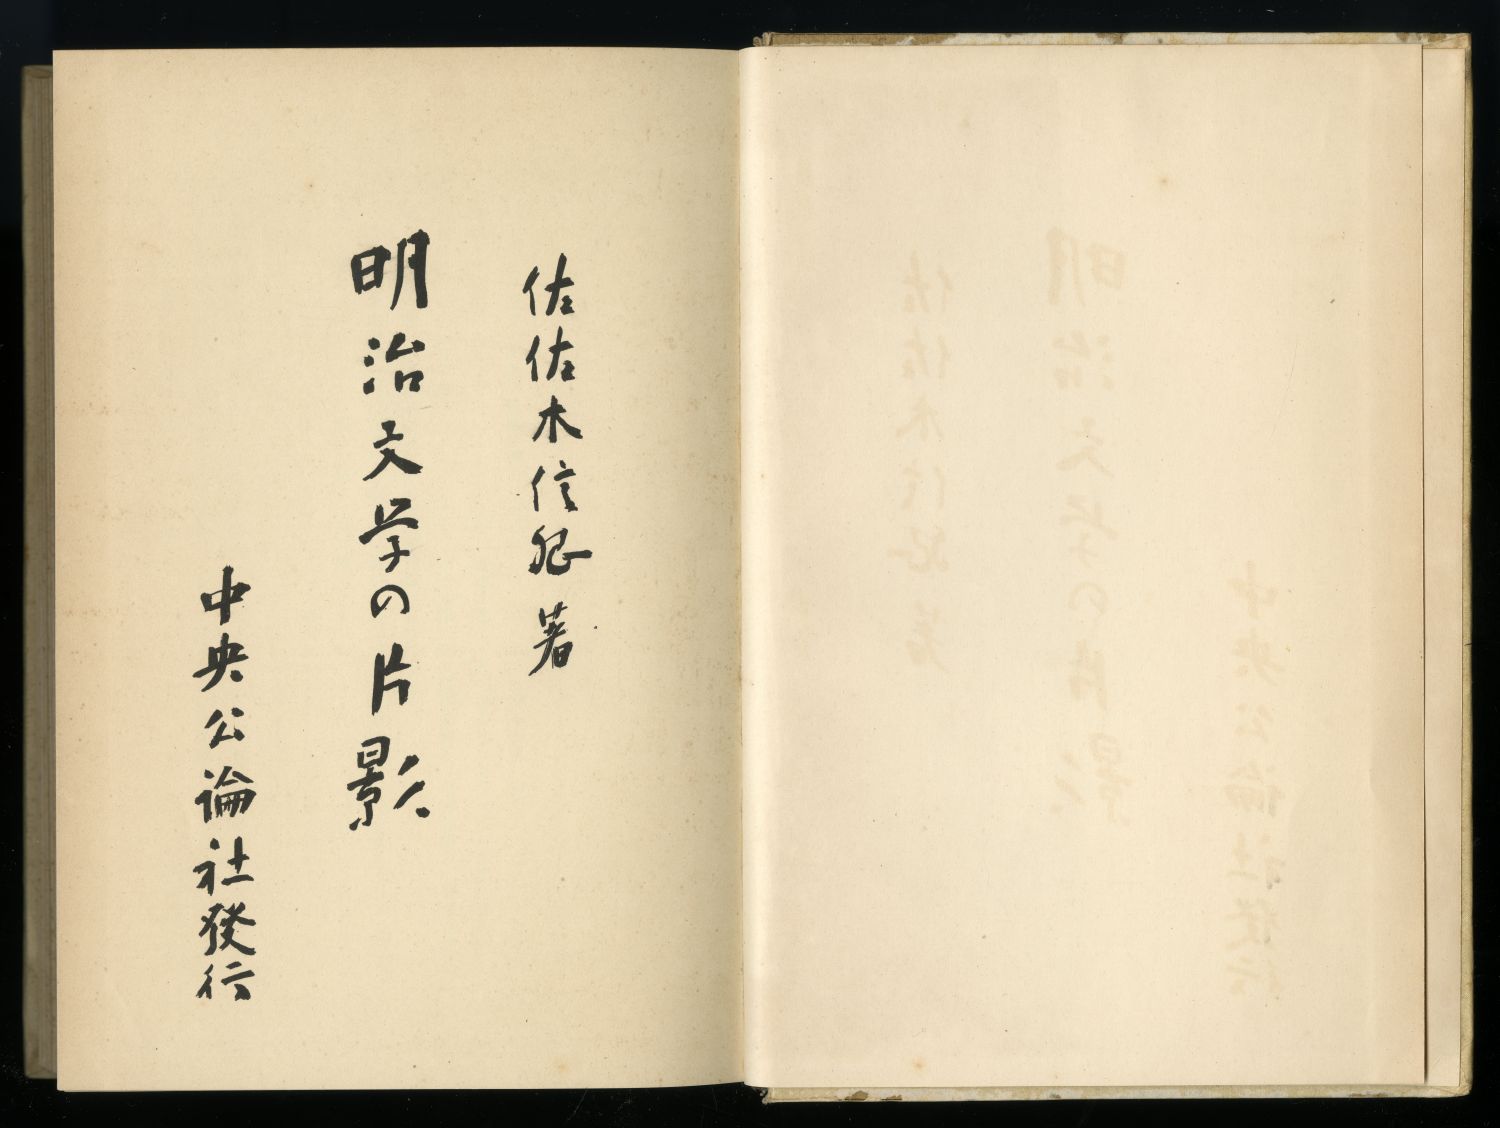 佐佐木信綱 著
明治文学の片影
中央公論社發行